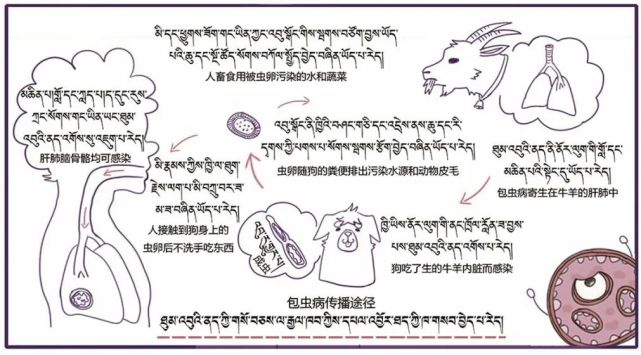 མི་དང་ཕྱུགས་ཟོག་གང་ཡིན་ཀྱང་འབུ་སྒོང་གིས་སྦགས་བཙོག་བྱས་ཡོད་
པའི་ཆུ་དང་སྔོ་ཚོད་སོགས་བཀོལ་སྤྱོད་བྱེད་བཞིན་ཡོད་པ་རེད།
人畜食用被虫卵污染的水和蔬菜
མཆིན་པ།གློ་དང་ཀླད་པ།དང་རུས་
ཀྲང་སོགས་གང་ཡིན་ཡང་ཐུམ་
འབུའི་ནད་འགོས་སུ་འཇུག་པ་རེད།
肝肺脑骨骼均可感染
འབུ་སྒོང་ནི་ཁྱིའི་བཤང་གཅི་དང་འདྲེས་ནས་ཆུ་དང་རི་
དྭགས་ཀྱི་པགས་པ་སོགས་སྦགས་རྩོག་བྱེད་བཞིན་ཡོད་པ་རེད།
虫卵随狗的粪便排出污染水源和动物皮毛
མི་རྣམས་ཀྱིས་ཁྱི་ལ་ཐུག་
རྗེས་ལག་པ་མི་བཀྲུ་བར་ཟ་
མ་ཟ་བཞིན་ཡོད་པ་རེད།
人接触到狗身上的
虫卵后不洗手吃东西
ཐུམ་འབུའི་ནད་ནི་ནོར་ལུག་གི་གློ་དང་
མཆིན་པའི་སྟེང་དུ་ཡོད་པ་རེད།
包虫病寄生在牛羊的肝肺中
成虫
ཁྱི་ཡིས་ནོར་ལུག་གི་ནང་ཁྲོལ་རློན་ཟ་བྱས་
པས་ཐུམ་འབུའི་ནད་འགོས་པ་རེད།
狗吃了生的牛羊内脏而感染
包虫病传播途径
ཐུམ་འབུའི་ནད་ཀྱི་གསོ་བཅས་ལ་རྒྱལ་ཁབ་ཀྱིས་དཔལ་འབྱོར་ཐད་ཀྱི་ཁ་གསབ་བྱེད་པ་རེད།